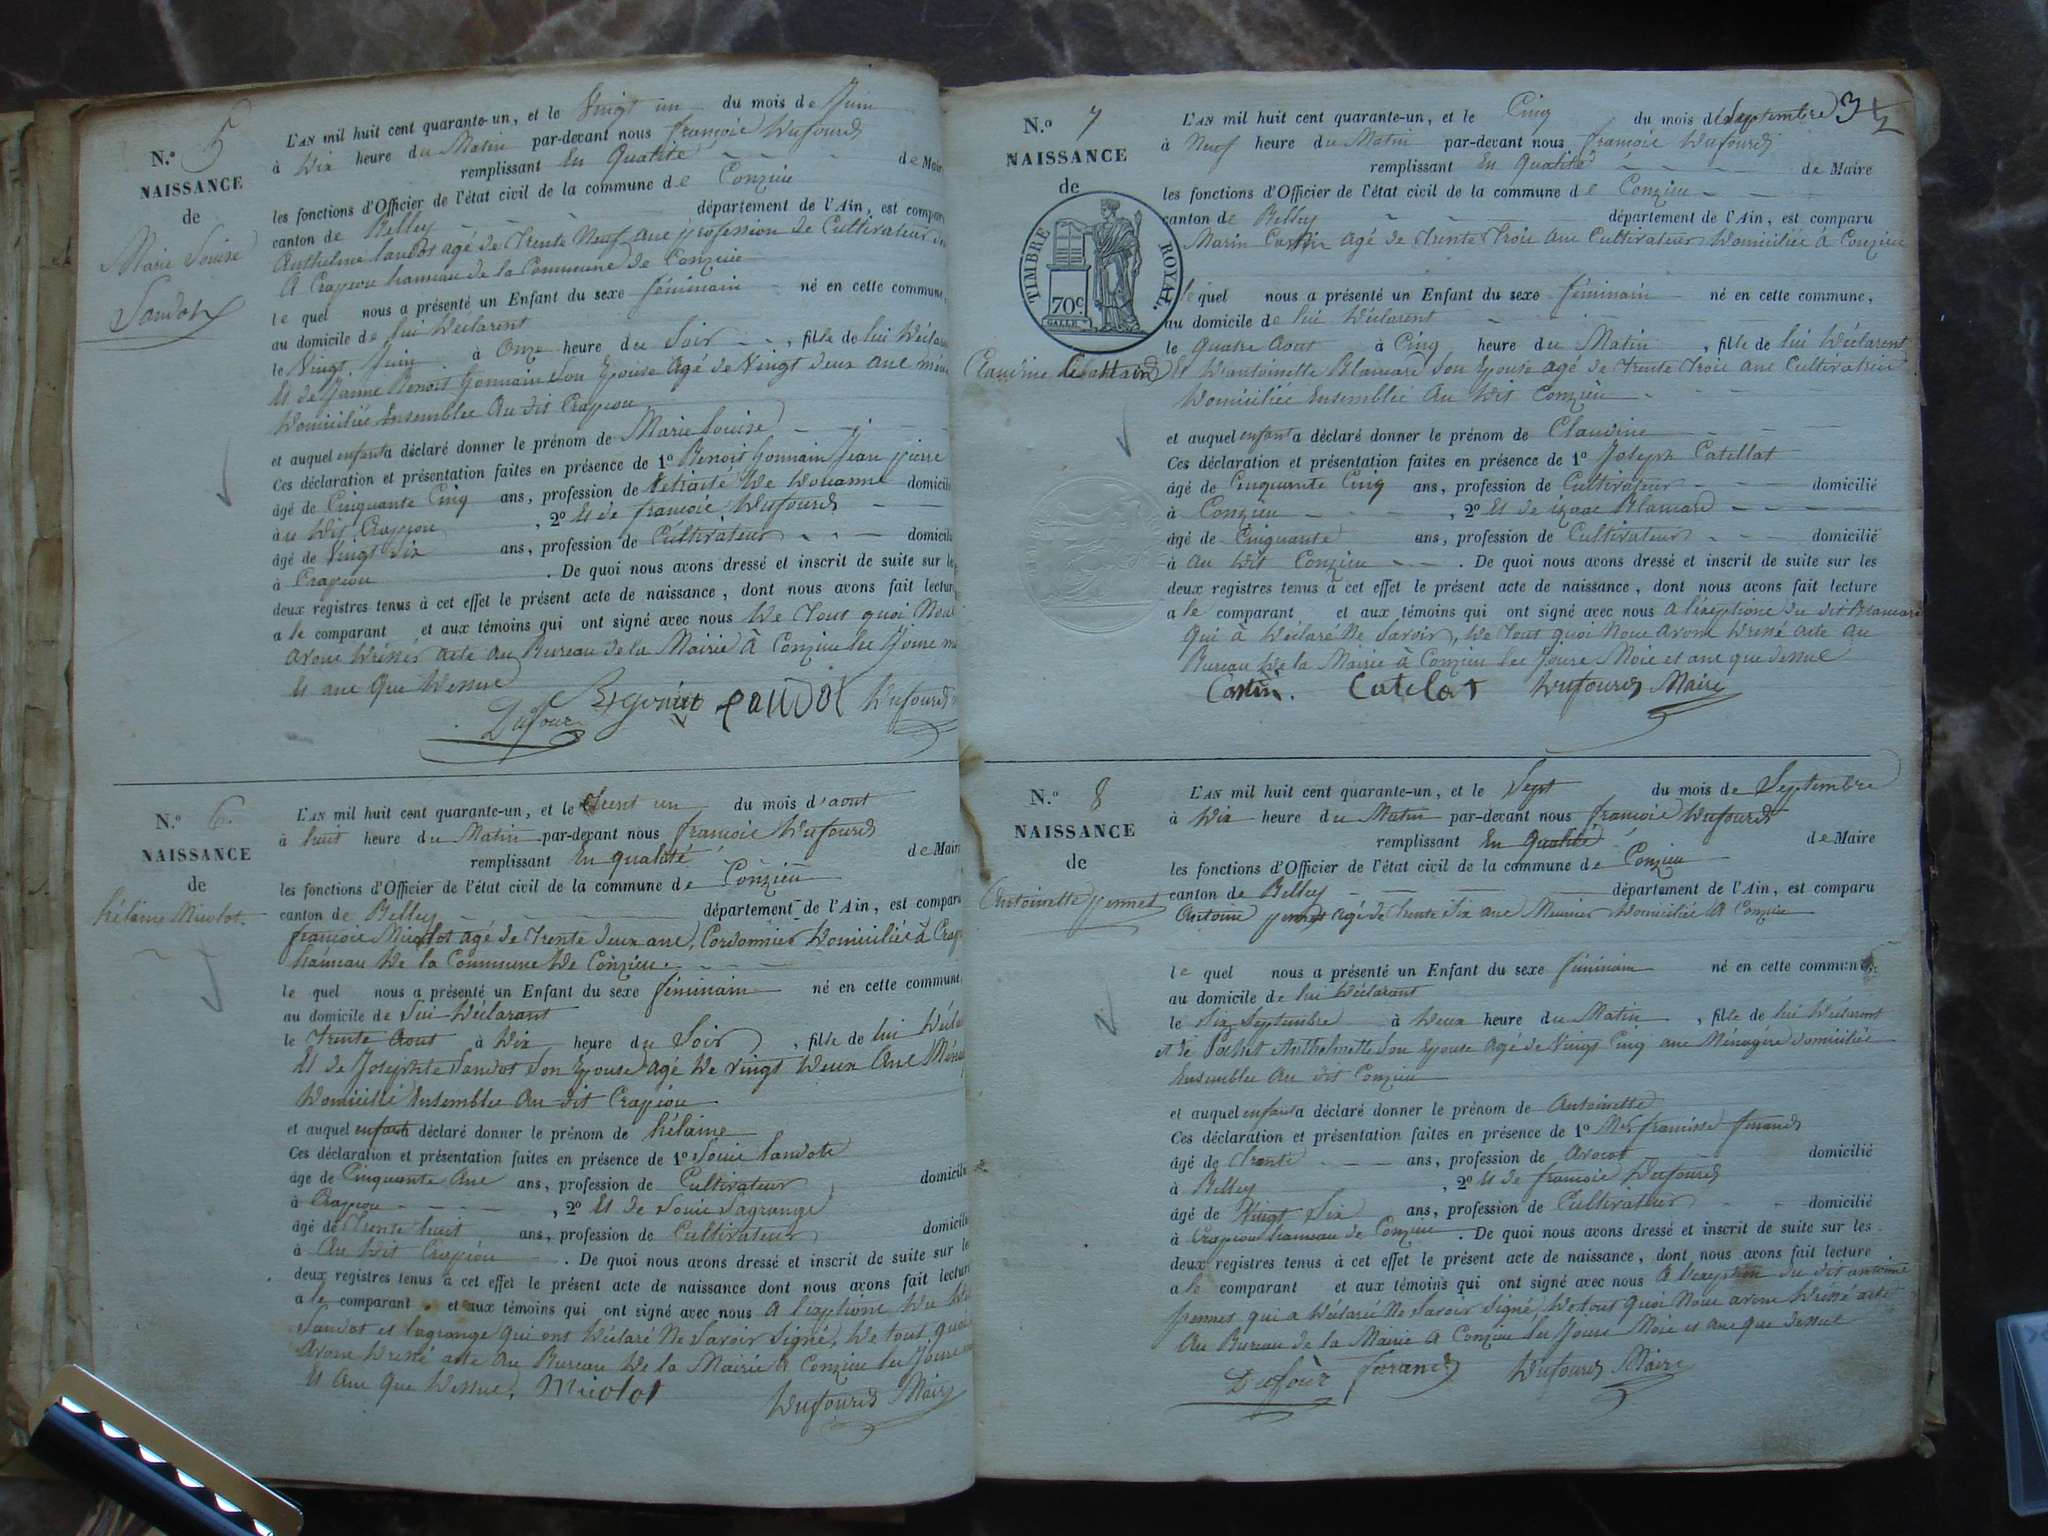 N.o 5
NAISSANCE
de
Marie Louise
Landot
L'AN mil huit cent quarante-un, et le Vingt un du mois de Juin
à Dix heure du Matin par-devant nous françois Dufourd
remplissant En Qualité de Maire
les fonctions d'Officier de l'état civil de la commune de Conzieu
canton de Belley département de l'Ain, est comparu
Anthelme landot agé de trente Neuf ans profession de Cultivateur
A Crapeou hameau de la Commune de Conzieu
le quel nous a présenté un Enfant du sexe féminain né en cette commune,
au domicile de lui Déclarent
le Vingt Juin à Onze heure du Soir, fille de lui
Et de Jeanne Benoit Gonnain Son Epouse agé de Vingt deux ans
Domiciliés Ensemblee Au dit Crapeou
et auquel enfant a déclaré donner le prénom de Marie Louise
Ces déclaration et présentation faites en présence de 1o Benoit Gonnain Jean pierre
âgé de Cinquante Cinq ans, profession de Retraité De Douanne domicilié
à u Dit Crapeou, 2o Et de françois Dufourd
âgé de Vingt Six ans, profession de Cultivateur domicilié
à Crapeou. De quoi nous avons dressé et inscrit de suite sur les
deux registres tenus à cet effet le présent acte de naissance, dont nous avons fait lecture
a le comparant et aux témoins qui ont signé avec nous De Tout quoi Nous
Avons Dresser acte au Bureau de la Mairie à Conzieu les Jours
Et ans Que Dessus
Dufour landot Dufourd
N.o 6
NAISSANCE
de
hélaine Micolot
L'AN mil huit cent quarante-un, et le Trent un du mois d'aout
à huit heure du Matin par-devant nous françois Dufourd
remplissant En qualité de Maire
les fonctions d'Officier de l'état civil de la commune de Conzieu
canton de Belley département de l'Ain, est comparu
françois Micolot agé de Trente deux ans, Cordonnier Domicilié à
hameau De la Commune De Conzieu
le quel nous a présenté un Enfant du sexe féminain né en cette commune,
au domicile de Lui Déclarant
le Trente Aout à Dix heure du Soir, fille de lui
Et de Josephte Landot Son Epouse agé De vingt Deux Ans
Domicilié Ensemblee Au dit Crapeou
et auquel enfant a déclaré donner le prénom de hélaine
Ces déclaration et présentation faites en présence de 1o Louis landot
âge de Cinquante Ans ans, profession de Cultivateur domicilié
à Crapeou, 2o Et de Louis Lagrange
âgé de Trente huit ans, profession de Cultivateur domicilié
à Au Dit Crapeou. De quoi nous avons dressé et inscrit de suite sur les
deux registres tenus à cet effet le présent acte de naissance dont nous avons fait lecture
a le comparant et aux témoins qui ont signé avec nous A l'exeptions Du
Landot et lagrange qui ont Déclaré Ne Savoir Signé, De tout quoi
Avons Dressé acte au Bureau De la Mairie A Conzieu les Jours
Et Ans Que Dessus, Micolot Dufourd Maire
N.o 7
NAISSANCE
de
TIMBRE ROYAL.
70c.
Claudine
3
L'AN mil huit cent quarante-un, et le Cinq du mois de Septembre
à Neuf heure du Matin par-devant nous françois Dufourd
remplissant En Qualité de Maire
les fonctions d'Officier de l'état civil de la commune de Conzieu
canton de Belley département de l'Ain, est comparu
Marin Castin agé de Trente Trois ans Cultivateur Domiciliée à Conzieu
le quel nous a présenté un Enfant du sexe féminain né en cette commune,
au domicile de lui Déclarent
le Quatre Aout à Cinq heure du Matin, fille de lui Déclarent
Et D'antoinette Blancard Son Epouse agé de Trente Trois ans Cultivatrice
Domiciliée Ensemblee Au Dit Conzieu
et auquel enfant a déclaré donner le prénom de Claudine
Ces déclaration et présentation faites en présence de 1o Joseph Catellat
âgé de Cinquante Cinq ans, profession de Cultivateur domicilié
à Conzieu, 2o Et de izaac Blancard
âgé de Cinquante ans, profession de Cultivateur domicilié
à au Dit Conzieu. De quoi nous avons dressé et inscrit de suite sur les
deux registres tenus à cet effet le présent acte de naissance, dont nous avons fait lecture
a le comparant et aux témoins qui ont signé avec nous A l'exeptions du dit Blancard
Qui à Déclaré Ne Savoir, De Tous quoi Nous avons Dressé acte Au
Bureau De la Mairie à Conzieu les Jours Mois et ans que dessus
Castin. Catelat Dufourd Maire
N.o 8
NAISSANCE
de
Antoinette yennet
L'AN mil huit cent quarante-un, et le Sept du mois de Septembre
à Dix heure du Matin par-devant nous françois Dufourd
remplissant En Qualité de Maire
les fonctions d'Officier de l'état civil de la commune de Conzieu
canton de Belley département de l'Ain, est comparu
Antoine yennet agé de Trente Six ans Meunier Domiciliée A Conzieu
le quel nous a présenté un Enfant du sexe féminain né en cette commune
au domicile de lui Déclarant
le Six Septembre à Deux heure du Matin, fille de lui Déclarent
et de Pochet Anthelmette Son Epouse agé de Vingt Cinq ans Ménagère domiciliée
Ensemblee Au dit Conzieu
et auquel enfant a déclaré donner le prénom de Antoinette
Ces déclaration et présentation faites en présence de 1o Mr francisse ferrand
âgé de Trente ans, profession de Avocat domicilié
à Belley, 2o Et de françois Dufourd
âgé de Vingt Six ans, profession de Cultivateur domicilié
à Crapeou hameau de Conzieu. De quoi nous avons dressé et inscrit de suite sur les
deux registres tenus à cet effet le présent acte de naissance, dont nous avons fait lecture
a le comparant et aux témoins qui ont signé avec nous A l'exeption du dit antoine
yennet qui a Déclaré Ne Savoir Signé, De tout quoi Nous avons Dressé acte
Au Bureau de la Mairie A Conzieu les Jours Mois et ans que dessus
Dufour ferrand Dufourd Maire